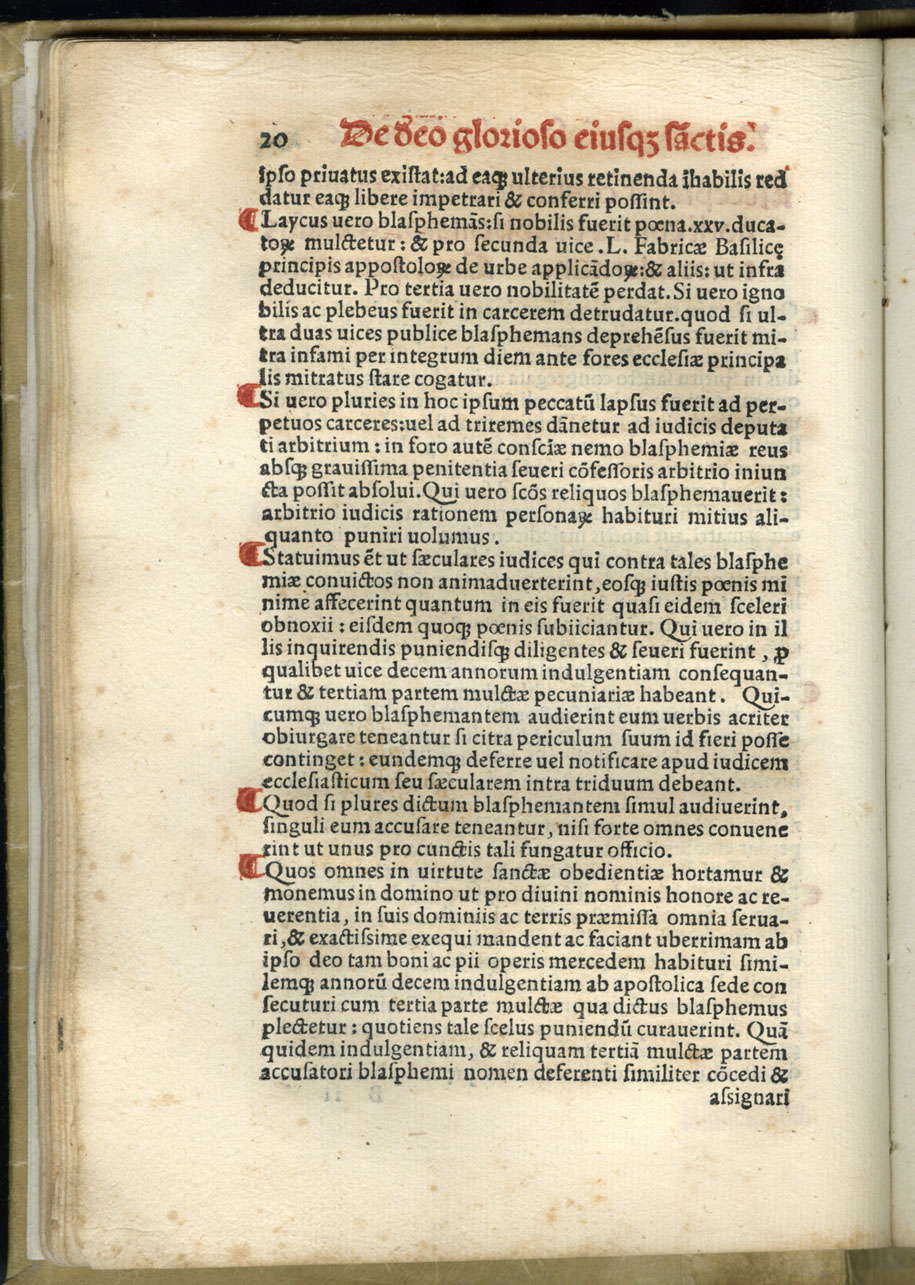 20 De deo glorioso eiusqꝫ sāctis.
ipso priuatus existat:ad eaqꝫ ulterius retinenda īhabilis red
datur eaqꝫ libere impetrari & conferri possint.
¶ Laycus uero blasphemās:si nobilis fuerit pœna.xxv.duca-
toꝝ mulctetur: & pro secunda uice .L. Fabricæ Basilicę
principis appostoloꝝ de urbe applicādoꝝ:& aliis: ut infra
deducitur. Pro tertia uero nobilitatē perdat. Si uero igno
bilis ac plebeus fuerit in carcerem detrudatur.quod si ul-
tra duas uices publice blasphemans deprehēsus fuerit mi-
tra infami per integrum diem ante fores ecclesiæ principa
lis mitratus stare cogatur.
¶ Si uero pluries in hoc ipsum peccatū lapsus fuerit ad per-
petuos carceres:uel ad triremes dānetur ad iudicis deputa
ti arbitrium : in foro autē consciæ nemo blasphemiæ reus
absqꝫ grauissima penitentia seueri cōfessoris arbitrio iniun
cta possit absolui.Qui uero scōs reliquos blasphemauerit:
arbitrio iudicis rationem personaꝝ habituri mitius ali-
quanto puniri uolumus.
¶ Statuimus ēt ut sæculares iudices qui contra tales blasphe
miæ conuictos non animaduerterint,eosqꝫ iustis pœnis mi
nime affecerint quantum in eis fuerit quasi eidem sceleri
obnoxii : eisdem quoqꝫ pœnis subiiciantur. Qui uero in il
lis inquirendis puniendisqꝫ diligentes & seueri fuerint , ꝓ
qualibet uice decem annorum indulgentiam consequan-
tur & tertiam partem mulctæ pecuniariæ habeant. Qui-
cumqꝫ uero blasphemantem audierint eum uerbis acriter
obiurgare teneantur si citra periculum suum id fieri posse
continget : eundemqꝫ deferre uel notificare apud iudicem
ecclesiasticum seu sæcularem intra triduum debeant.
¶ Quod si plures dictum blasphemantem simul audiuerint,
singuli eum accusare teneantur, nisi forte omnes conuene
rint ut unus pro cunctis tali fungatur officio.
¶ Quos omnes in uirtute sanctæ obedientiæ hortamur &
monemus in domino ut pro diuini nominis honore ac re-
uerentia, in suis dominiis ac terris præmissa omnia serua-
ri,& exactissime exequi mandent ac faciant uberrimam ab
ipso deo tam boni ac pii operis mercedem habituri simi-
lemqꝫ annorū decem indulgentiam ab apostolica sede con
secuturi cum tertia parte mulctæ qua dictus blasphemus
plectetur : quotiens tale scelus puniendū curauerint. Quā
quidem indulgentiam, & reliquam tertiā mulctæ partem
accusatori blasphemi nomen deferenti similiter cōcedi &
assignari